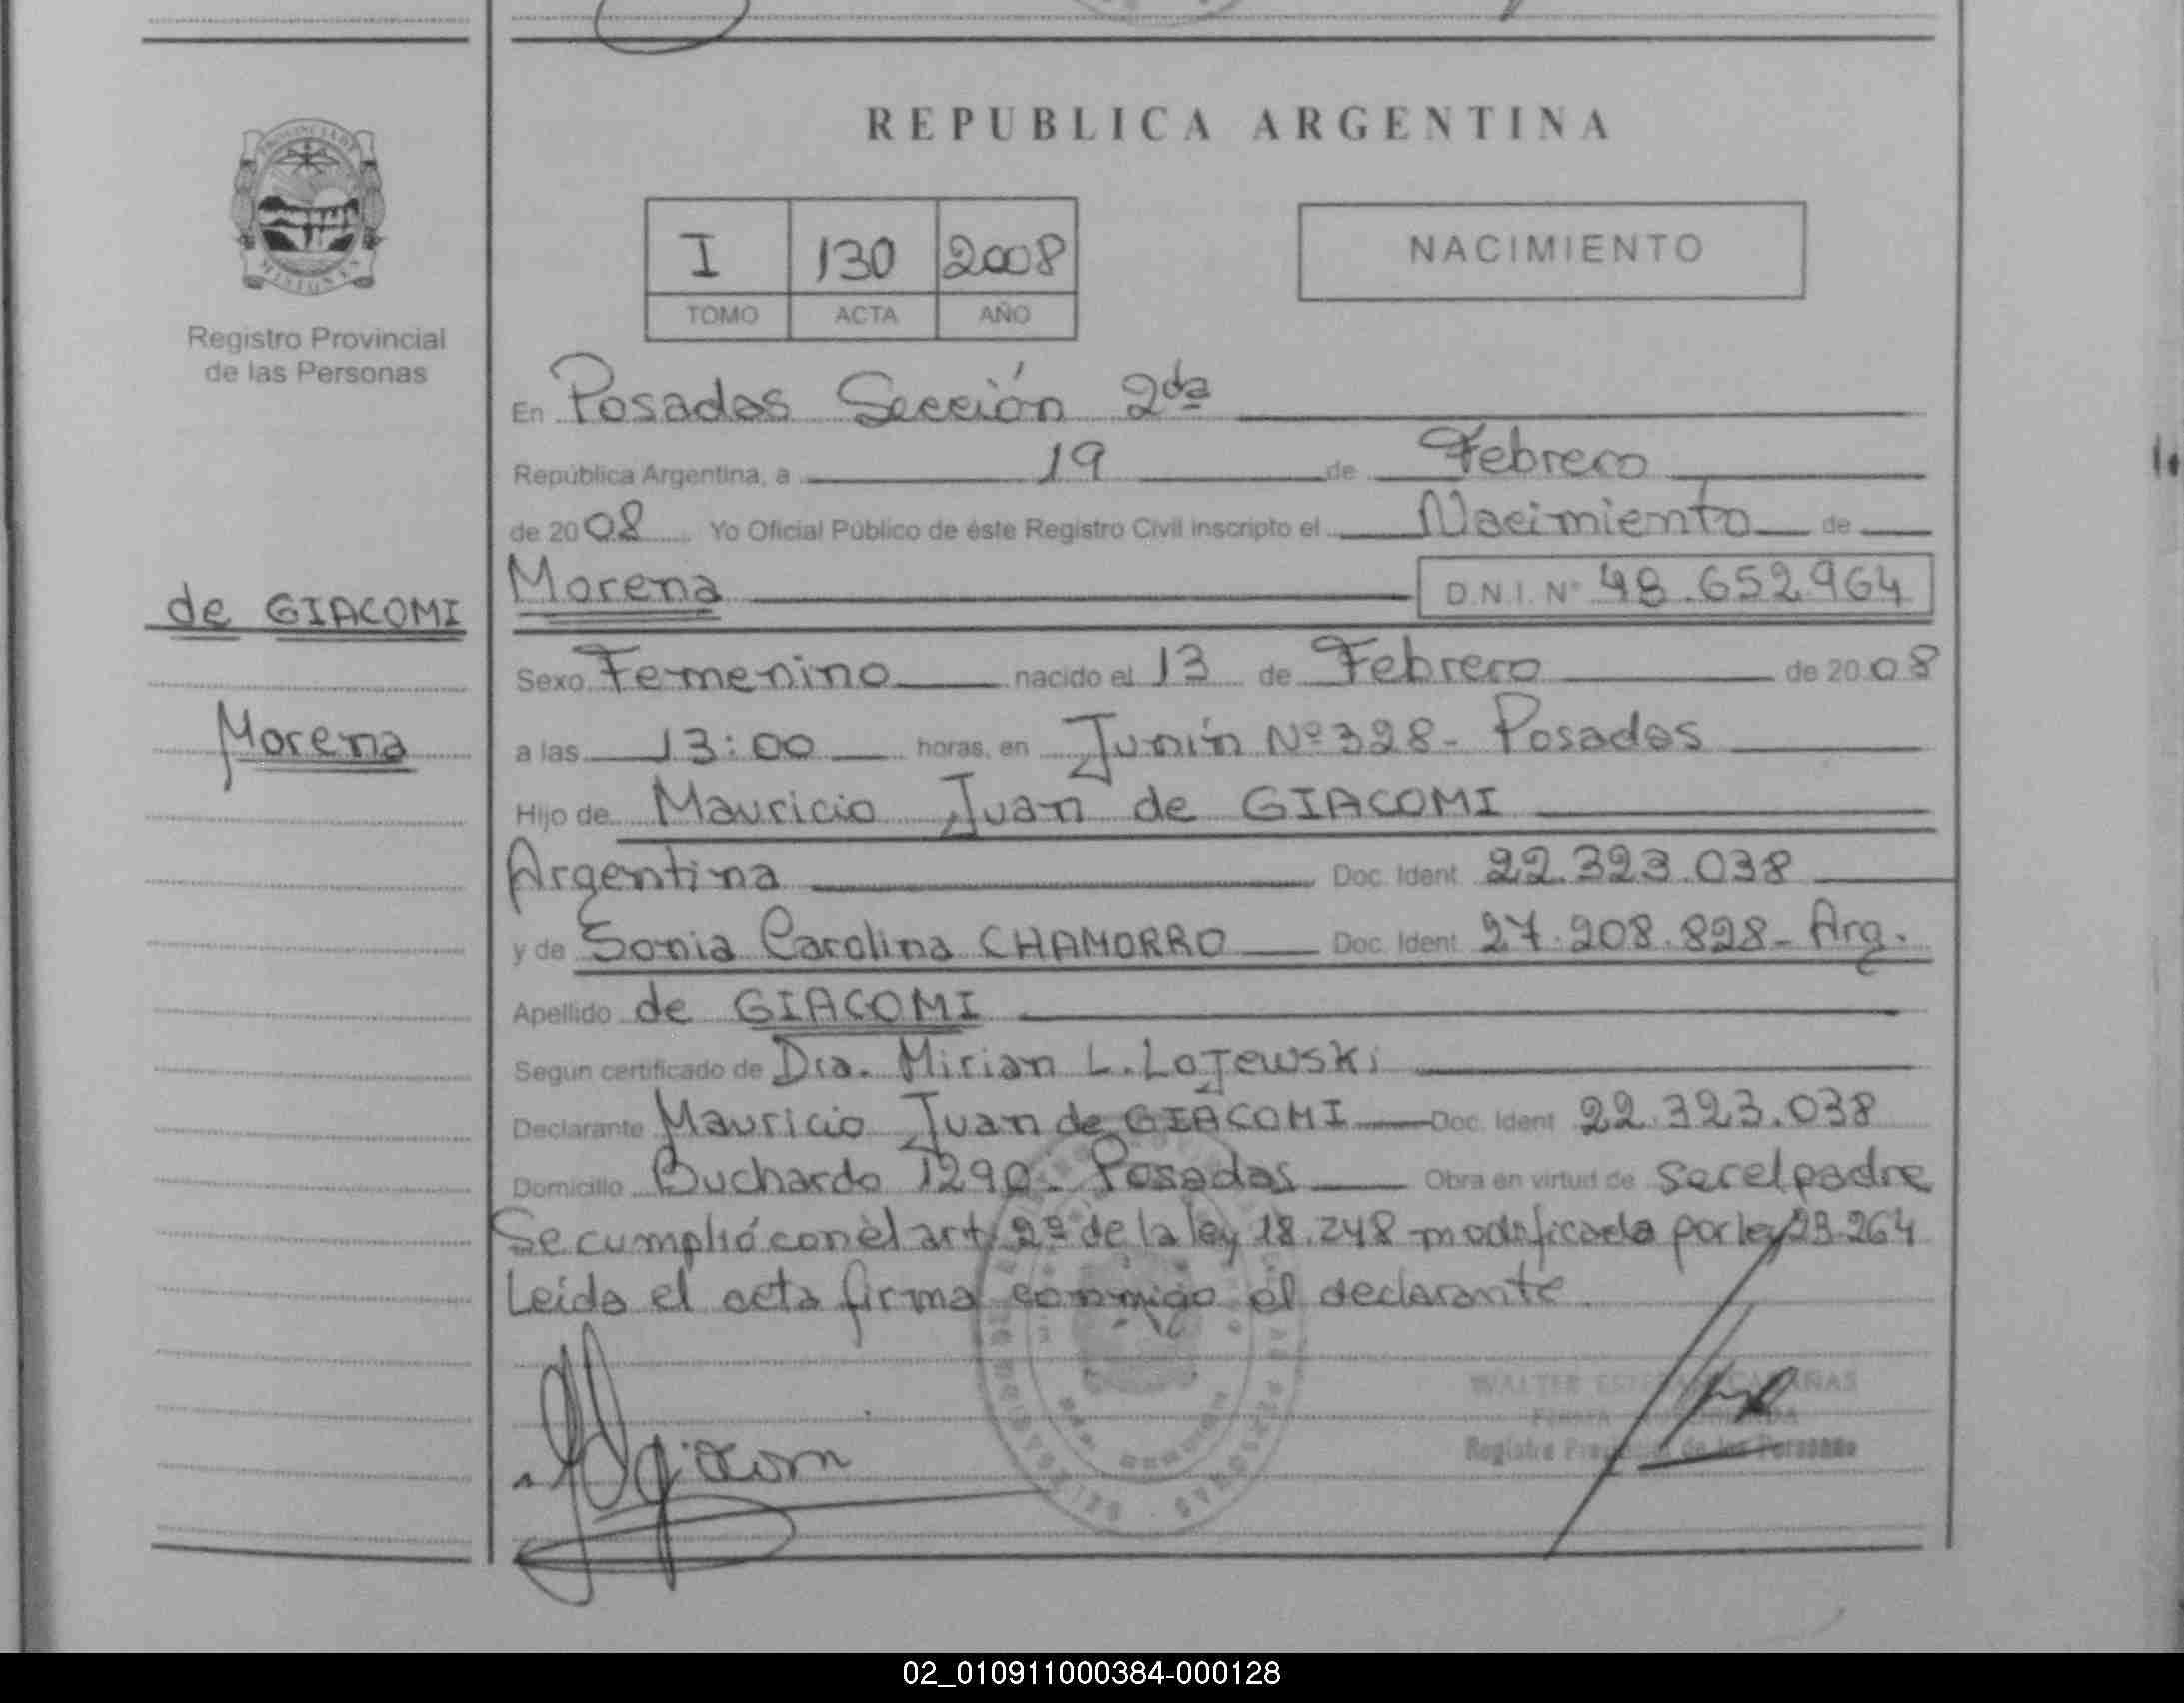 REPUBLICA ARGENTINA
I 130 2008
TOMO ACTA AÑO
NACIMIENTO
Registro Provincial
de las Personas
En Posadas Sección 2da
República Argentina, a 19 de Febrero
de 2008 Yo Oficial Público de éste Registro Civil inscripto el Nacimiento de
de GIACOMI
Morena
Morena D.N.I. Nº 48.652.964
Sexo Femenino nacido el 13 de Febrero de 2008
a las 13:00 horas, en Junín Nº 328- Posadas
Hijo de Mauricio Juan de GIACOMI
Argentina Doc. Ident. 22.323.038
y de Sonia Carolina CHAMORRO Doc. Ident. 27.208.828- Arg.
Apellido de GIACOMI
Según certificado de Dra. Mirian L. Lojewski
Declarante Mauricio Juan de GIACOMI Doc. Ident 22.323.038
Domicilio Buchardo 1290- Posadas Obra en virtud de ser el padre
Se cumplió con el art 2º de la ley 18.248 modificada por ley 23.264
Leída el acta firma conmigo el declarante.
WALTER
Registro Provincial de las Personas
02_010911000384-000128